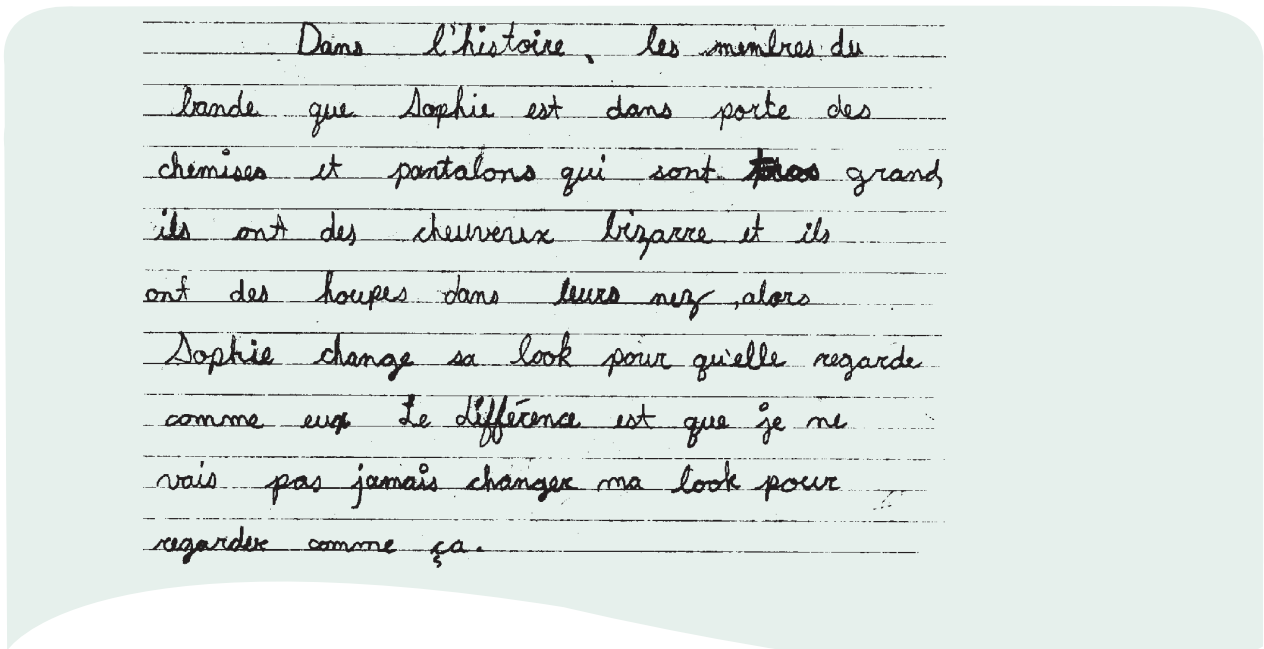 Dans l'histoire, les membres du
bande que Sophie est dans porte des
chemises et pantalons qui sont tros grand,
ils ont des cheuveux bizarre et ils
ont des houpes dans leurs nez, alors
Sophie change sa look pour qu'elle regarde
comme eux Le différence est que je ne
vais pas jamais changer ma look pour
regarder comme ça.